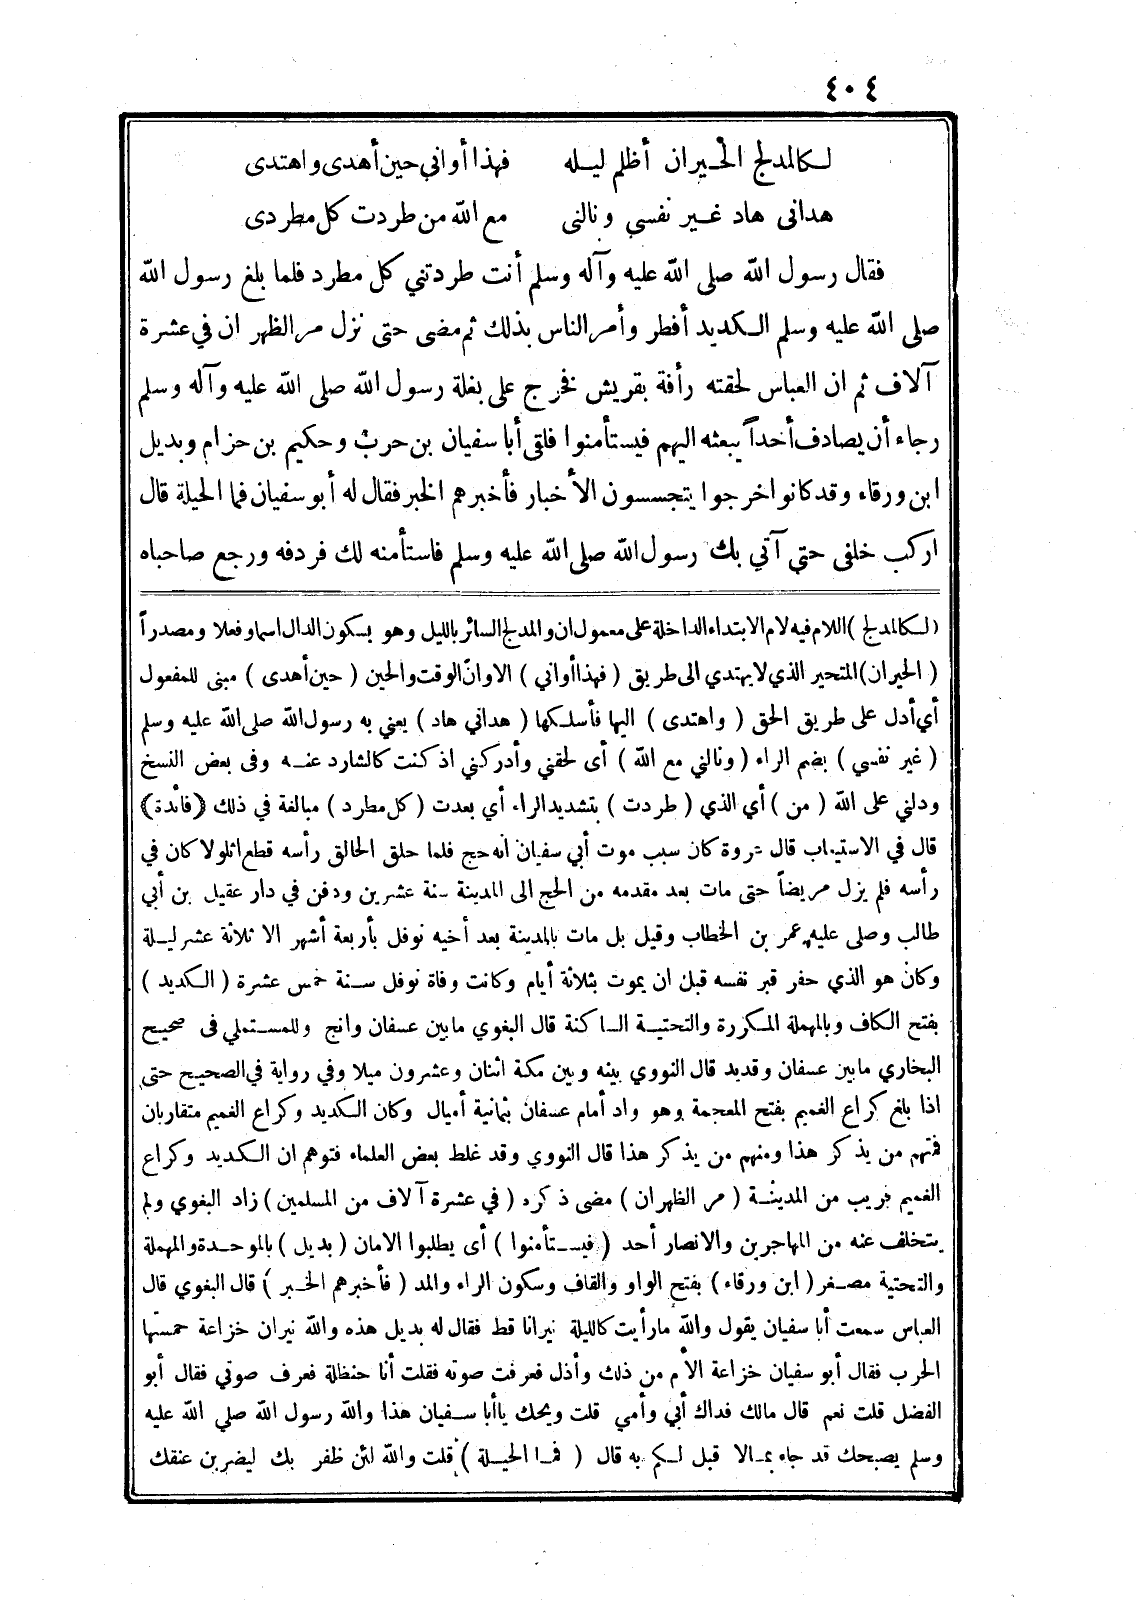 ٤٠٤
لكالمدلج الحيران أظلم ليله فهذا أواني حين أهدى واهتدى
هدانى هاد غير نفسي ونالنى مع الله من طردت كل مطردى
فقال رسول الله صلى الله عليه وآله وسلم أنت طردتني كل مطرد فلما بلغ رسول الله
صلى الله عليه وسلم الكديد أفطر وأمر الناس بذلك ثم مضى حتى نزل مر الظهر ان في عشرة
آلاف ثم ان العباس لحقته رأفة بقريش فخرج على بغلة رسول الله صلى الله عليه وآله وسلم
رجاء أن يصادف أحداً يبعثه اليهم فيستأمنوا فلقى أبا سفيان بن حرب وحكيم بن حزام وبديل
ابن ورقاء وقد كانوا خرجوا يتجسسون الأخبار فأخبرهم الخبر فقال له أبو سفيان فما الحيلة قال
اركب خلفى حتى آتي بك رسول الله صلى الله عليه وسلم فاستأمنه لك فردفه ورجع صاحباه
(لكالمدلج) اللام فيه لام الابتداء الداخلة على معمول ان والمدلج السائر بالليل وهو بسكون الدال اسما وفعلا ومصدراً
(الحيران) المتحير الذي لا يهتدي الى طريق (فهذا أواني) الاوان الوقت والحين (حين أهدى) مبنى للمفعول
أي أدل على طريق الحق (واهتدى) اليها فأسلكها (هداني هاد) يعني به رسول الله صلى الله عليه وسلم
(غير نفسي) بضم الراء (ونالني مع الله) أى لحقني وأدركني اذ كنت كالشارد عنه وفى بعض النسخ
ودلني على الله (من) أي الذي (طردت) بتشديد الراء أي بعدت (كل مطرد) مبالغة في ذلك (فائدة)
قال في الاستيعاب قال عروة كان سبب موت أبي سفيان انه حج فلما حلق الحالق رأسه قطع اثلولا كان في
رأسه فلم يزل مريضاً حتى مات بعد مقدمه من الحج الى المدينة سنة عشرين ودفن في دار عقيل بن أبي
طالب وصلى عليه عمر بن الخطاب وقيل بل مات بالمدينة بعد أخيه نوفل بأربعة أشهر الا ثلاثة عشر ليلة
وكان هو الذي حفر قبر نفسه قبل ان يموت بثلاثة أيام وكانت وفاة نوفل سنة خمس عشرة (الكديد)
بفتح الكاف وبالمهملة المكررة والتحتية الساكنة قال البغوي ما بين عسفان وانج وللمستملي فى صحيح
البخاري ما بين عسفان وقديد قال النووي بينه وبين مكة اثنان وعشرون ميلا وفي رواية في الصحيح حتى
اذا بلغ كراع الغميم بفتح المعجمة وهو واد أمام عسفان بثمانية أميال وكان الكديد وكراع الغميم متقاربان
فمنهم من يذكر هذا ومنهم من يذكر هذا قال النووي وقد غلط بعض العلماء فتوهم ان الكديد وكراع
الغميم قريب من المدينة (مر الظهران) مضى ذكره (في عشرة آلاف من المسلمين) زاد البغوي ولم
يتخلف عنه من المهاجرين والانصار أحد (فيستأمنوا) أى يطلبوا الامان (بديل) بالموحدة والمهملة
والتحتية مصغر (ابن ورقاء) بفتح الواو والقاف وسكون الراء والمد (فأخبرهم الخبر) قال البغوي قال
العباس سمعت أبا سفيان يقول والله ما رأيت كالليلة نيرانا قط فقال له بديل هذه والله نيران خزاعة حمستها
الحرب فقال أبو سفيان خزاعة الأم من ذلك وأذل فعرفت صوته فقلت أنا حنظلة فعرف صوتي فقال أبو
الفضل قلت نعم قال مالك فداك أبي وأمي قلت ويحك يا أبا سفيان هذا والله رسول الله صلي الله عليه
وسلم يصبحك قد جاء بما لا قبل لكم به قال (فما الحيلة) قلت والله لئن ظفر بك ليضربن عنقك